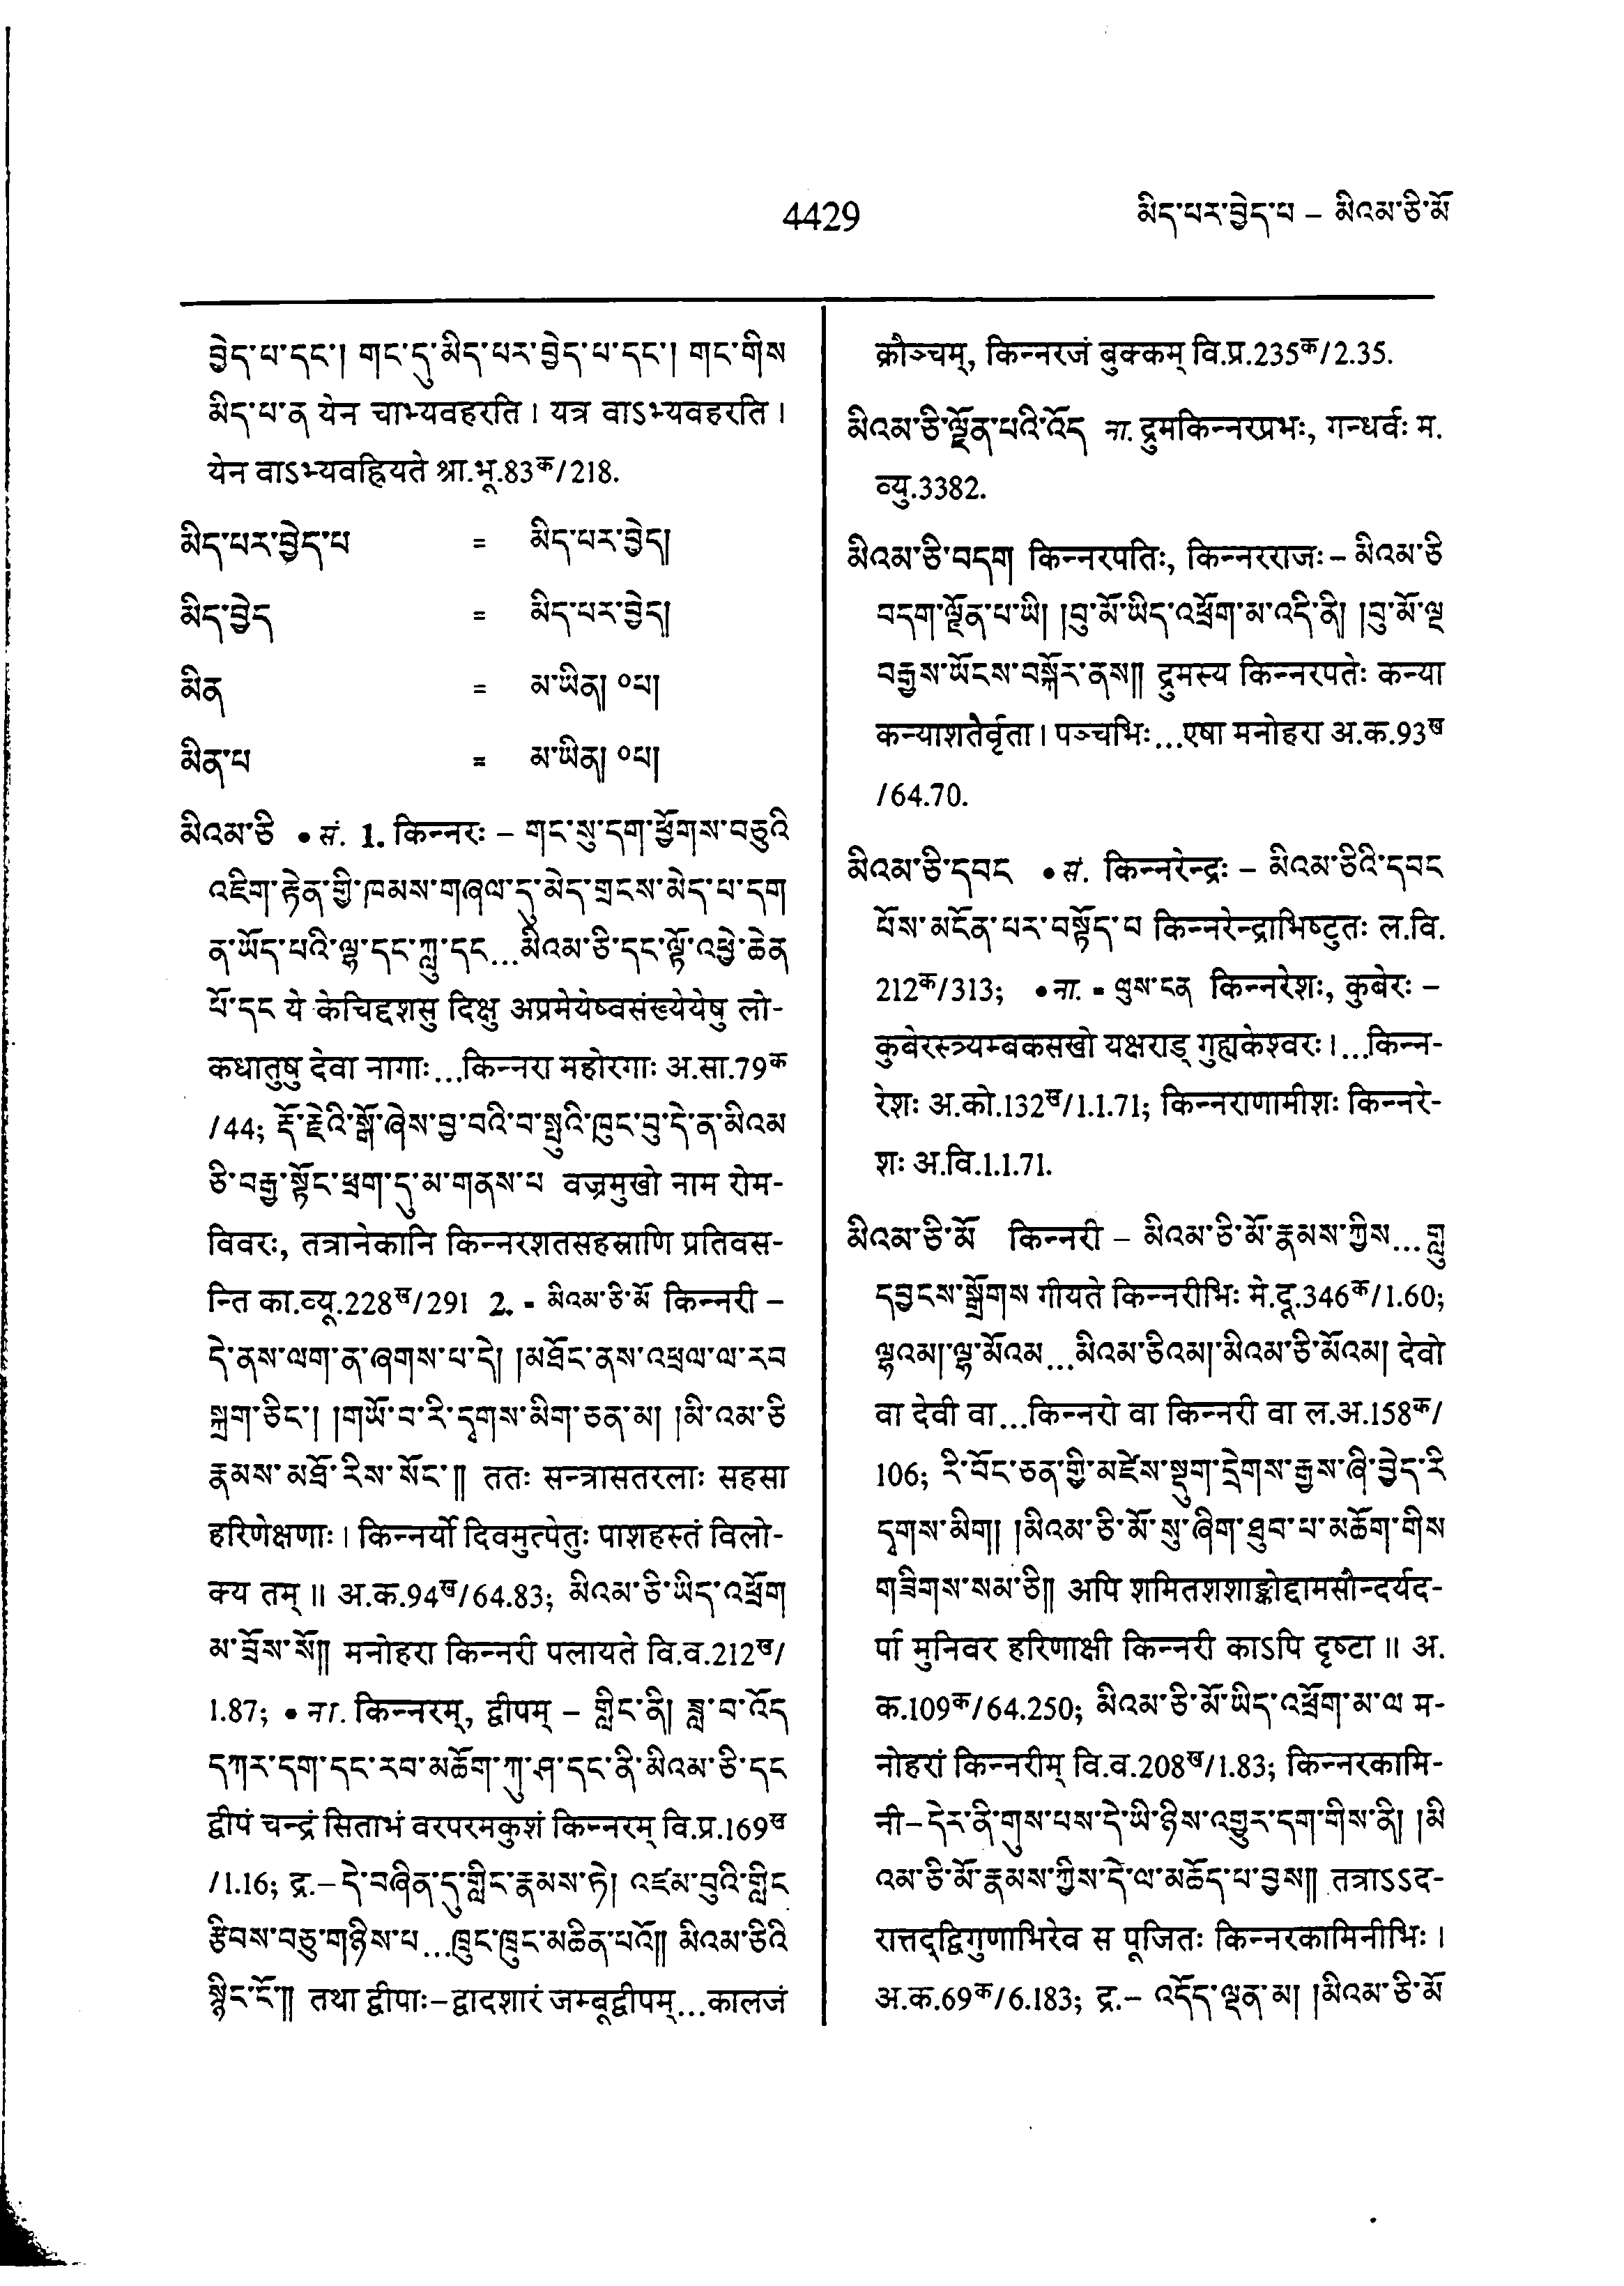 4429
མིད་པར་བྱེད་པ – མིའམ་ཅི་མོ
བྱེད་པ་དང་། གང་དུ་མིད་པར་བྱེད་པ་དང་། གང་གིས
མིད་པ་ན येन चाभ्यवहरति। यत्र वाऽभ्यवहरति।
येन वाऽभ्यवह्रियते श्रा.भू.83क/218.
མིད་པར་བྱེད་པ = མིད་པར་བྱེད།
མིད་བྱེད = མིད་པར་བྱེད།
མིན = མ་ཡིན། ༠པ།
མིན་པ = མ་ཡིན། ༠པ།
མིའམ་ཅི • सं. 1. किन्नरः – གང་སུ་དག་ཕྱོགས་བཅུའི
འཇིག་རྟེན་གྱི་ཁམས་གཞལ་དུ་མེད་གྲངས་མེད་པ་དག
ན་ཡོད་པའི་ལྷ་དང་ཀླུ་དང...མིའམ་ཅི་དང་ལྟོ་འཕྱེ་ཆེན
པོ་དང ये केचिद्दशसु दिक्षु अप्रमेयेष्वसंख्येयेषु लो-
कधातुषु देवा नागाः...किन्नरा महोरगाः अ.सा.79क
/44; རྡོ་རྗེའི་སྒོ་ཞེས་བྱ་བའི་བ་སྤུའི་ཁུང་བུ་དེ་ན་མིའམ
ཅི་བརྒྱ་སྟོང་ཕྲག་དུ་མ་གནས་པ वज्रमुखो नाम रोम-
विवरः, तत्रानेकानि किन्नरशतसहस्राणि प्रतिवस-
न्ति का.व्यू.228ख/291 2. = མིའམ་ཅི་མོ किन्नरी –
དེ་ནས་ལག་ན་ཞགས་པ་དེ། །མཐོང་ནས་འཕྲལ་ལ་རབ
སྐྲག་ཅིང་། །གཡོ་བ་རི་དྭགས་མིག་ཅན་མ། །མི་འམ་ཅི
རྣམས་མཐོ་རིས་སོང་༎ ततः सन्त्रासतरलाः सहसा
हरिणेक्षणाः। किन्नर्यो दिवमुत्पेतुः पाशहस्तं विलो-
क्य तम्॥ अ.क.94ख/64.83; མིའམ་ཅི་ཡིད་འཕྲོག
མ་བྲོས་སོ༎ मनोहरा किन्नरी पलायते वि.व.212ख/
1.87; • ना. किन्नरम्, द्वीपम् – གླིང་ནི། ཟླ་བ་འོད
དཀར་དག་དང་རབ་མཆོག་ཀུ་ཤ་དང་ནི་མིའམ་ཅི་དང
द्वीपं चन्द्रं सिताभं वरपरमकुशं किन्नरम् वि.प्र.169ख
/1.16; द्र.– དེ་བཞིན་དུ་གླིང་རྣམས་ཏེ། འཛམ་བུའི་གླིང
རྩིབས་བཅུ་གཉིས་པ...ཁྲུང་ཁྲུང་མཆིན་པའོ༎ མིའམ་ཅིའི
སྙིང་ངོ་༎ तथा द्वीपाः–द्वादशारं जम्बूद्वीपम्...कालजं
क्रौञ्चम्, किन्नरजं बुक्कम् वि.प्र.235क/2.35.
མིའམ་ཅི་ལྗོན་པའི་འོད ना. द्रुमकिन्नरप्रभः, गन्धर्वः म.
व्यु.3382.
མིའམ་ཅི་བདག किन्नरपतिः, किन्नरराजः – མིའམ་ཅི
བདག་ལྗོན་པ་ཡི། །བུ་མོ་ཡིད་འཕྲོག་མ་འདི་ནི། །བུ་མོ་ལྔ
བརྒྱས་ཡོངས་བསྐོར་ནས༎ द्रुमस्य किन्नरपतेः कन्या
कन्याशतैर्वृता। पञ्चभिः...एषा मनोहरा अ.क.93ख
/64.70.
མིའམ་ཅི་དབང • सं. किन्नरेन्द्रः – མིའམ་ཅིའི་དབང
པོས་མངོན་པར་བསྟོད་པ किन्नरेन्द्राभिष्टुतः ल.वि.
212क/313; • ना. = ལུས་ངན किन्नरेशः, कुबेरः –
कुबेरस्त्र्यम्बकसखो यक्षराड् गुह्यकेश्वरः।...किन्न-
रेशः अ.को.132ख/1.1.71; किन्नराणामीशः किन्नरे-
शः अ.वि.1.1.71.
མིའམ་ཅི་མོ किन्नरी – མིའམ་ཅི་མོ་རྣམས་ཀྱིས...གླུ
དབྱངས་སྒྲོགས गीयते किन्नरीभिः मे.दू.346क/1.60;
ལྷའམ།་ལྷ་མོའམ...མིའམ་ཅིའམ།་མིའམ་ཅི་མོའམ། देवो
वा देवी वा...किन्नरो वा किन्नरी वा ल.अ.158क/
106; རི་བོང་ཅན་གྱི་མཛེས་སྡུག་དྲེགས་རྒྱས་ཞི་བྱེད་རི
དྭགས་མིག། །མིའམ་ཅི་མོ་སུ་ཞིག་ཐུབ་པ་མཆོག་གིས
གཟིགས་སམ་ཅི༎ अपि शमितशशाङ्कोद्दामसौन्दर्यद-
र्पा मुनिवर हरिणाक्षी किन्नरी काऽपि दृष्टा॥ अ.
क.109क/64.250; མིའམ་ཅི་མོ་ཡིད་འཕྲོག་མ་ལ म-
नोहरां किन्नरीम् वि.व.208ख/1.83; किन्नरकामि-
नी– དེར་ནི་གུས་པས་དེ་ཡི་ཉིས་འགྱུར་དག་གིས་ནི། །མི
འམ་ཅི་མོ་རྣམས་ཀྱིས་དེ་ལ་མཆོད་པ་བྱས༎ तत्राऽऽद-
रात्तद्द्विगुणाभिरेव स पूजितः किन्नरकामिनीभिः।
अ.क.69क/6.183; द्र.– འདོད་ལྡན་མ། །མིའམ་ཅི་མོ